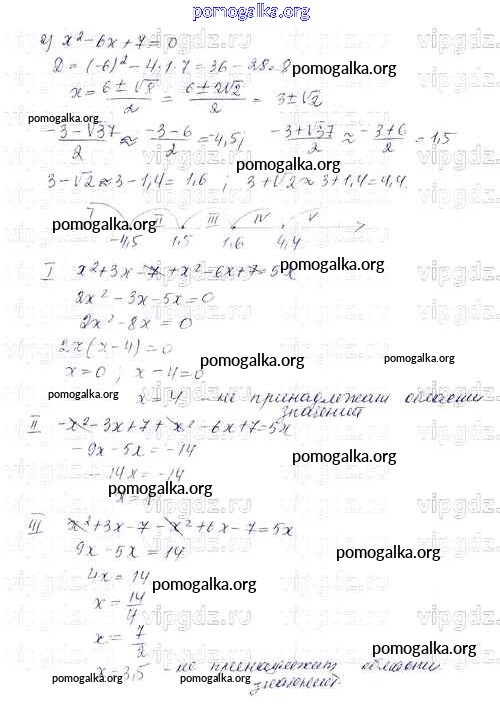 pomogalka.org
2) x² - 6x + 7 = 0
D = (-6)² - 4·1·7 = 36 - 28 = 8
pomogalka.org
x = (6 ± √8)/2 = (6 ± 2√2)/2 = 3 ± √2
pomogalka.org pomogalka.org
(-3 - √37)/2 ≈ (-3 - 6)/2 = -4,5; (-3 + √37)/2 ≈ (-3 + 6)/2 = 1,5
3 - √2 ≈ 3 - 1,4 = 1,6 ; 3 + √2 ≈ 3 + 1,4 = 4,4.
I II III IV V
pomogalka.org pomogalka.org
-4,5 1,5 1,6 4,4
pomogalka.org
I x² + 3x - 7 + x² - 6x + 7 = 5x
2x² - 3x - 5x = 0
2x² - 8x = 0
2x(x - 4) = 0
pomogalka.org pomogalka.org
x = 0 ; x - 4 = 0
x = 4 - не принадлежат области
значений
II -x² - 3x + 7 + x² - 6x + 7 = 5x
pomogalka.org
-9x - 5x = -14
pomogalka.org
-14x = -14
pomogalka.org
III x² + 3x - 7 - x² + 6x - 7 = 5x
9x - 5x = 14
pomogalka.org
4x = 14
pomogalka.org
x = 14/4
x = 7/2
pomogalka.org
x = 3,5 - не принадлежит области
pomogalka.org pomogalka.org
значений.
pomogalka.org
vipgdz.ru